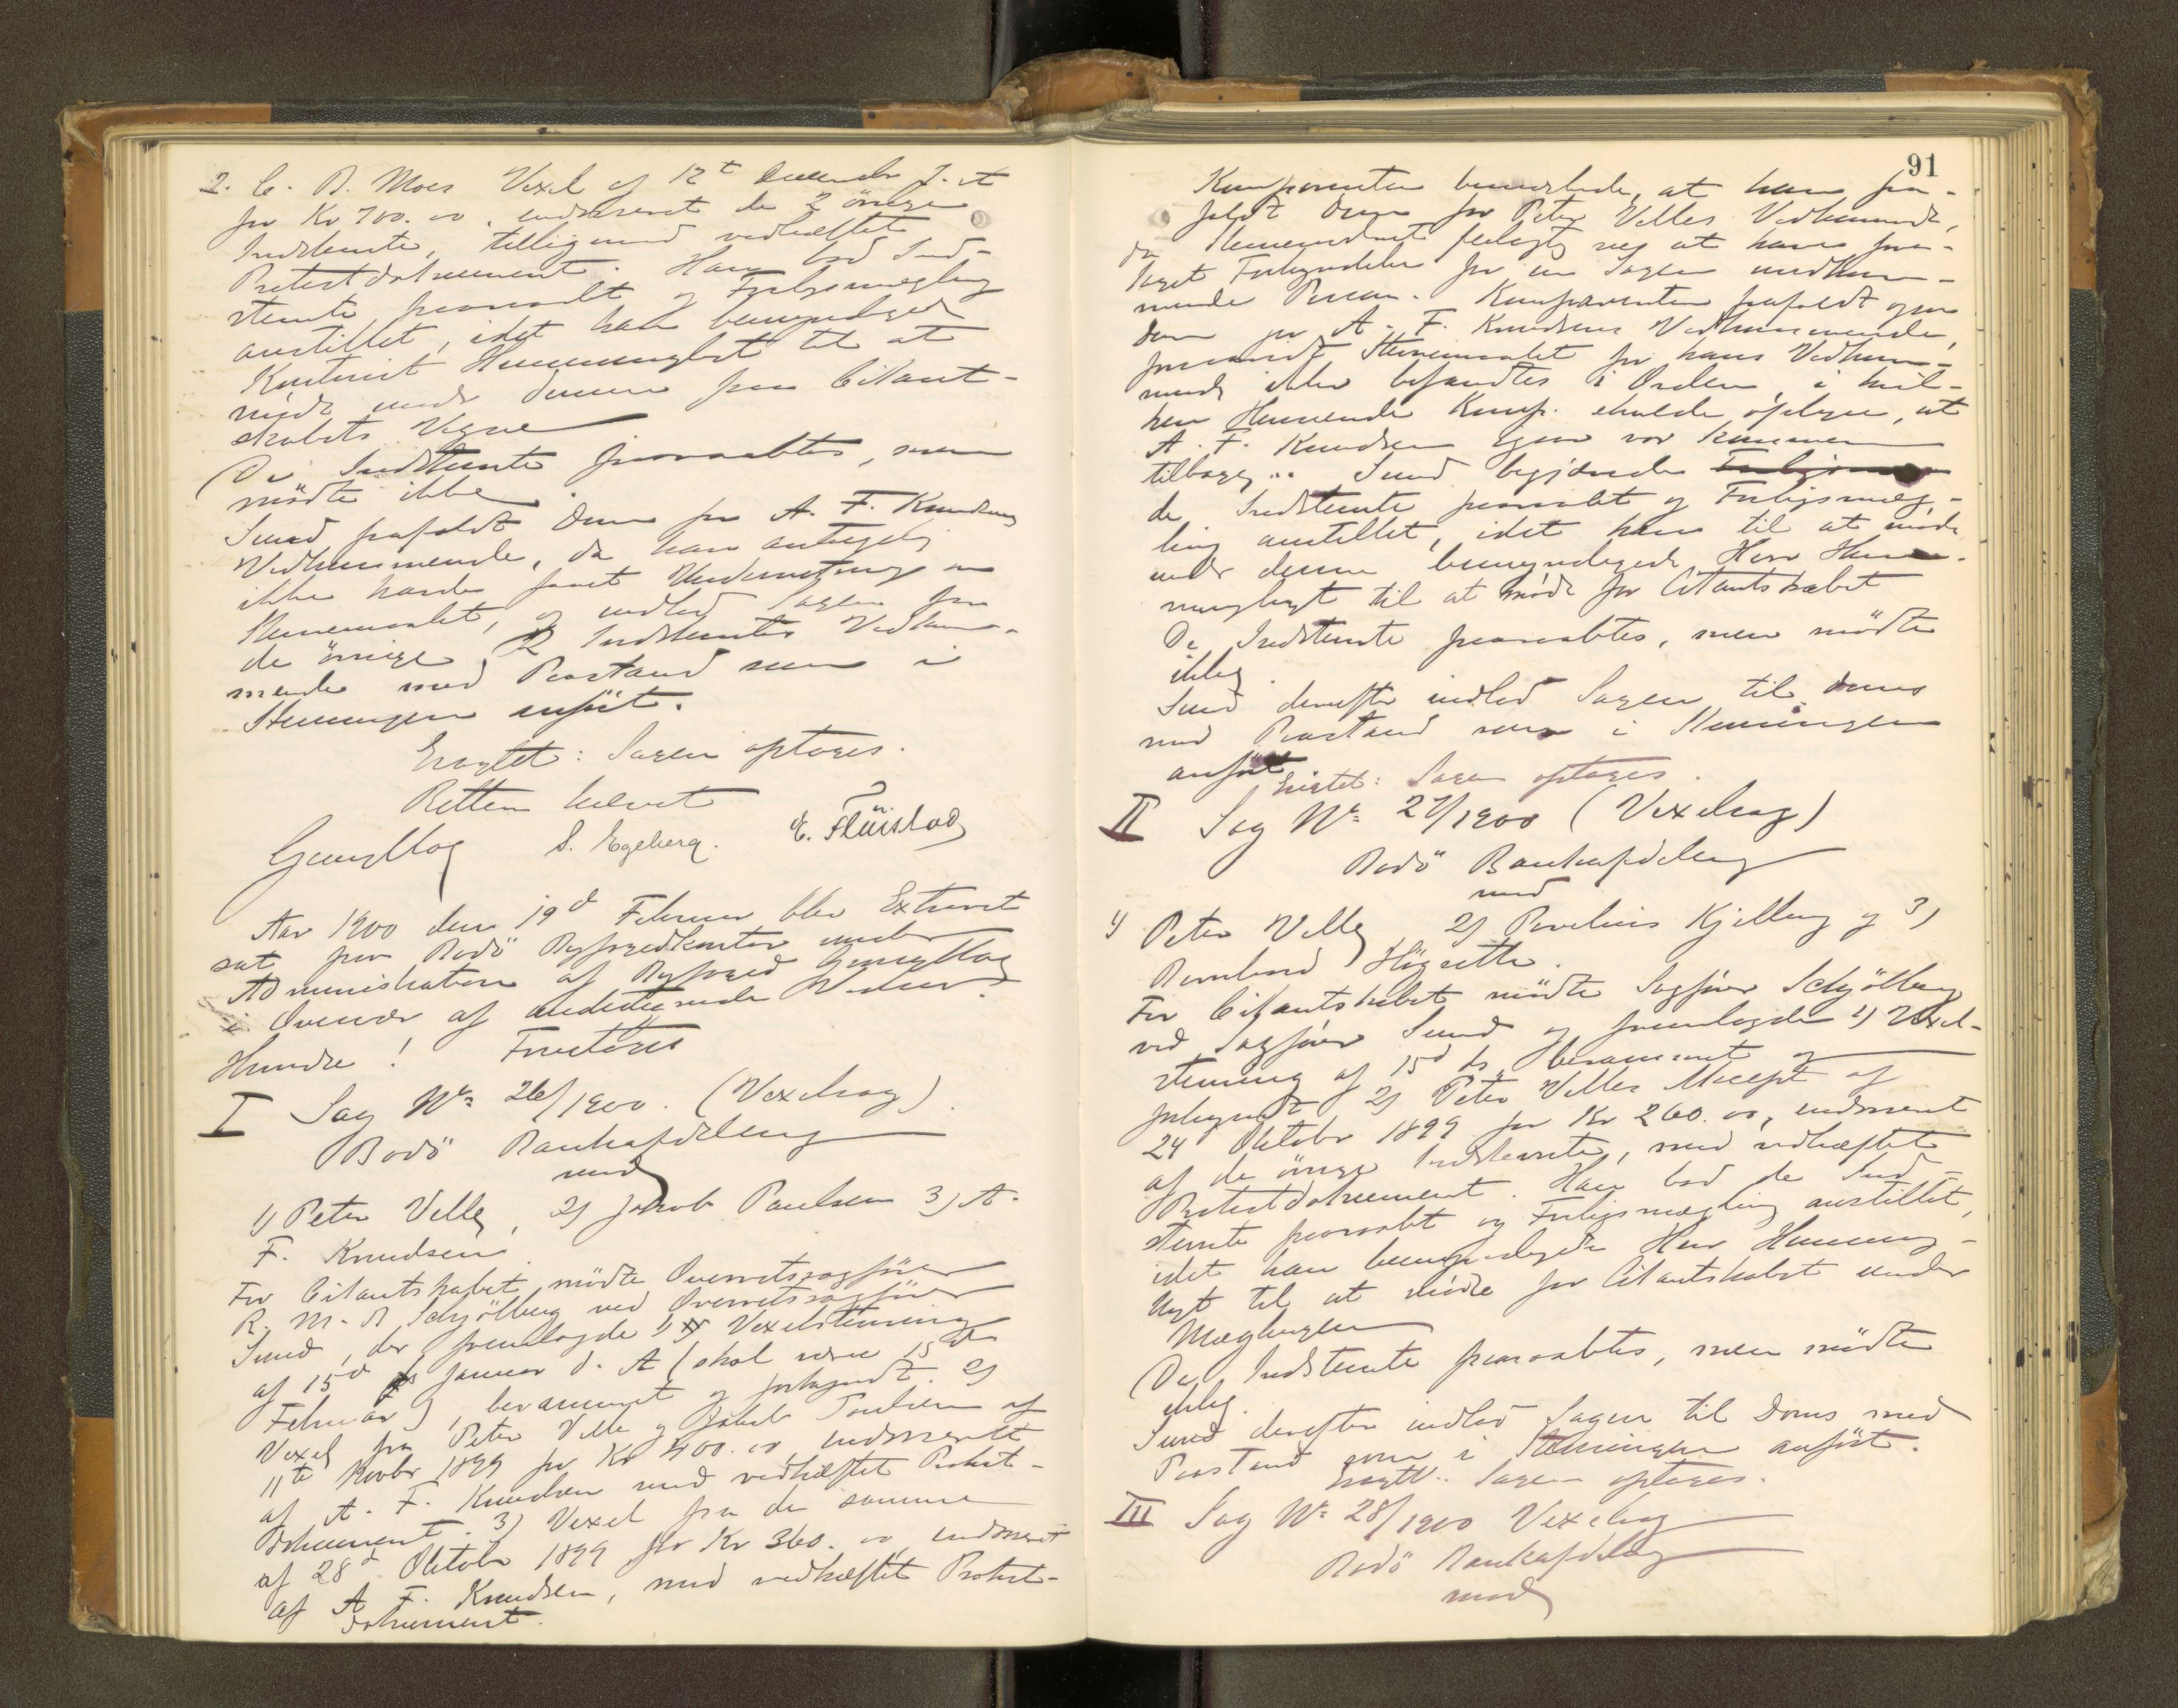 2. C. B. Moes Vexel af 12te December f. A
for Kr 700.00, endosseret de 2 övrige
Indstevnte, tilligemed vedhæftet
Protestdokument. Han bad Ind-
stevnte paaraabt og Forligsmægling
anstillet, idet han bemyndiged
Kontorist Hemmingbyt til at
møde under denne paa Citant-
skabets Vegne
De Indstevnte paaraabtes, men
mödte ikke
Sund frafaldt Dom for A. F. Knudsens
Vedkommende, da han antagelig
ikke havde faaet Underretning om
Stevnemaalet, og indlod Sagen for
de övrige 2 Indstevntes Vedkom-
mende med Paastand som i
Stevningen anfört.
Eragtet: Sagen optages.
Retten hævet
S. Egeberg. E. Flüistad
Aar 1900 den 19d Februar blev Extraret
sat paa Bodö Byfogedkontor under
Administration af Byfoged
i Overvær af undertegnede Vidner.
Hvorda! Foretoges
I Sag No 26/1900. (Vexelsag).
Bodö Bankafdeling
mod
1) Peter Velle, 2) Jakob Paulsen 3) A.
F. Knudsen.
For Citantskabet mödte Overretssagfører
R. M. B Schjölberg ved Overretssagfører
Sund, der fremlagde 1) Vexelstevning
af 15d Januar d. A (skal være 15de
Februar), berammet og forkyndt. 2)
Vexel fra Peter Velle og Jakob Paulsen af
11te Novbr 1899 for Kr 400.00 endosseret
af A. F. Knudsen med vedhæftet Protest-
dokument. 3) Vexel fra de samme
af 28d Oktober 1899 for Kr 360.00 endosseret
af A F. Knudsen, med vedhæftet Protest-
dokument.
91
Komparenten bemærkede, at han fra-
faldt Dom for Peter Velles Vedkommende,
da Stevnevidnet feilagtig sees at have fore-
taget Forkyndelse for en Sagen uvedkom-
mende Person. Komparenten frafaldt ogsaa
Dom for A. F. Knudsens Vedkommende,
forsaavidt Stevnemaalet for hans Vedkom-
mende ikke befandtes i Orden, i hvil-
ken Henseende Komp. skulde oplyse, at
A. F. Knudsen igjen var kommen
tilbage. Sund begjærede
de Indstevnte paaraabt og Forligsmæg-
ling anstillet, idet han til at møde
under denne bemyndigede Herr Hem-
mingbyt til at møde for Citantskabet
De Indstevnte paaraabtes, men mödte
ikke.
Sund derefter indlod Sagen til Doms
med Paastand som i Stevningen
anfört.
Eragtet: Sagen optages.
II Sag No 27/1900 (Vexelsag)
Bodö Bankafdeling
mod
1) Peter Velle, 2) Pavelius Kjelberg og 3)
Bernhard Høgsette.
For Citantskabet mödte Sagfører Schjölberg
ved Sagfører Sund og fremlagde 1) Vexel-
stevning af 15d ds, berammet og
forkyndt 2) Peter Velles Accept af
24 Oktober 1899 for Kr 260.00, endosseret
af de övrige Indstevnte, med vedhæftet
Protestdokument. Han bad de Ind-
stevnte paaraabt og Forligsmægling anstillet,
idet han bemyndigede Herr Hemming-
byt til at möde for Citantskabet under
Mæglingen
De Indstevnte paaraabtes, men mödte
ikke.
Sund derefter indlod Sagen til Doms med
Paastand som i Stevningen anfört.
Eragtet: Sagen optages.
III Sag No 28/1900 Vexelsag
Bodö Bankafdeling
mod